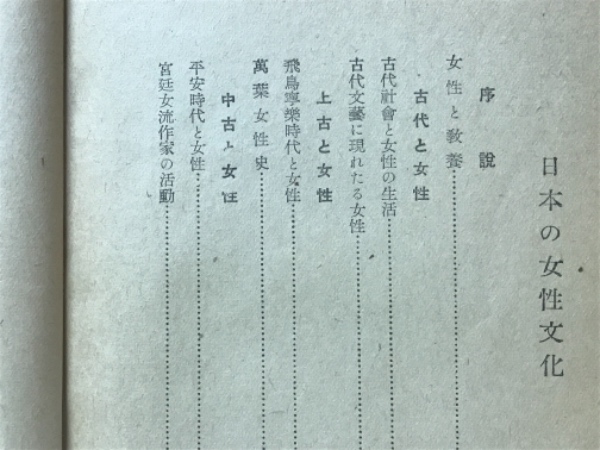 日本の女性文化
序說
女性と敎養
古代と女性
古代社會と女性の生活
古代文藝に現れたる女性
上古と女性
飛鳥寧樂時代と女性
萬葉女性史
中古と女性
平安時代と女性
宮廷女流作家の活動